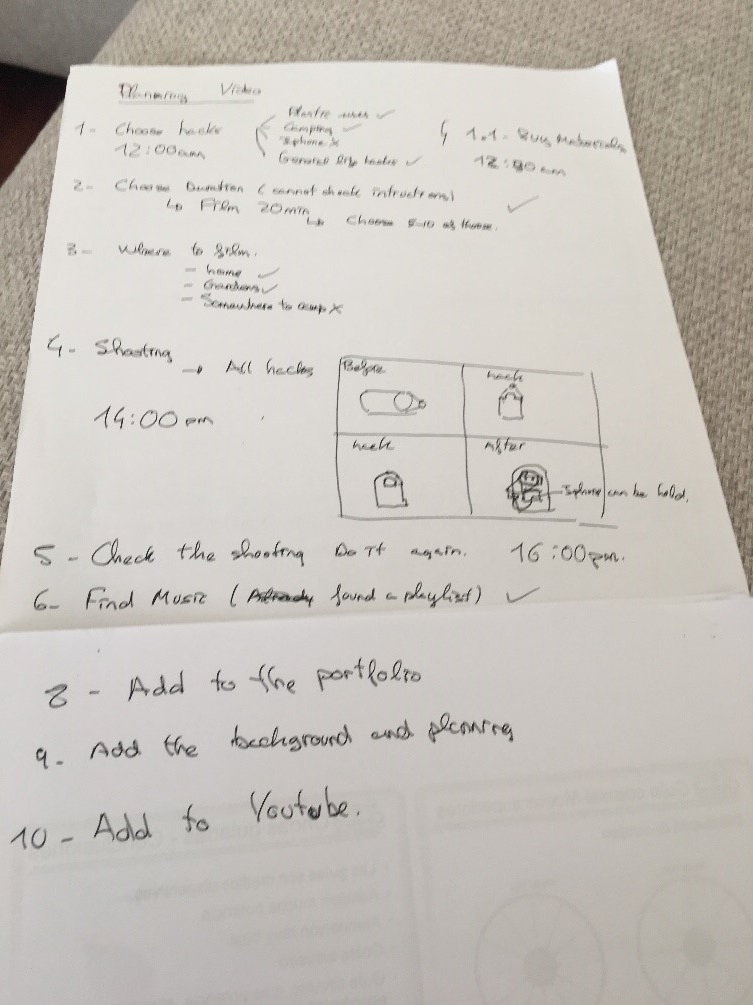 Planning Video
1- Choose hacks
12:00am
Plastic uses ✓
Camping ✓
Iphone X
General life hacks ✓
1.1- Buy Materials
12:80am
2- Choose Duration (cannot check intructions)
↳ Film 20min ✓
↳ Choose 5-10 of them.
3- Where to film.
- home ✓
- Gardens ✓
- Somewhere to camp X
4- Shooting
→ All hacks
14:00pm
Before
hack
hack
After
Iphone can be hold.
5- Check the shooting Do it again. 16:00pm.
6- Find Music (Already found a playlist) ✓
8- Add to the portfolio
9- Add the background and planning
10- Add to Youtube.